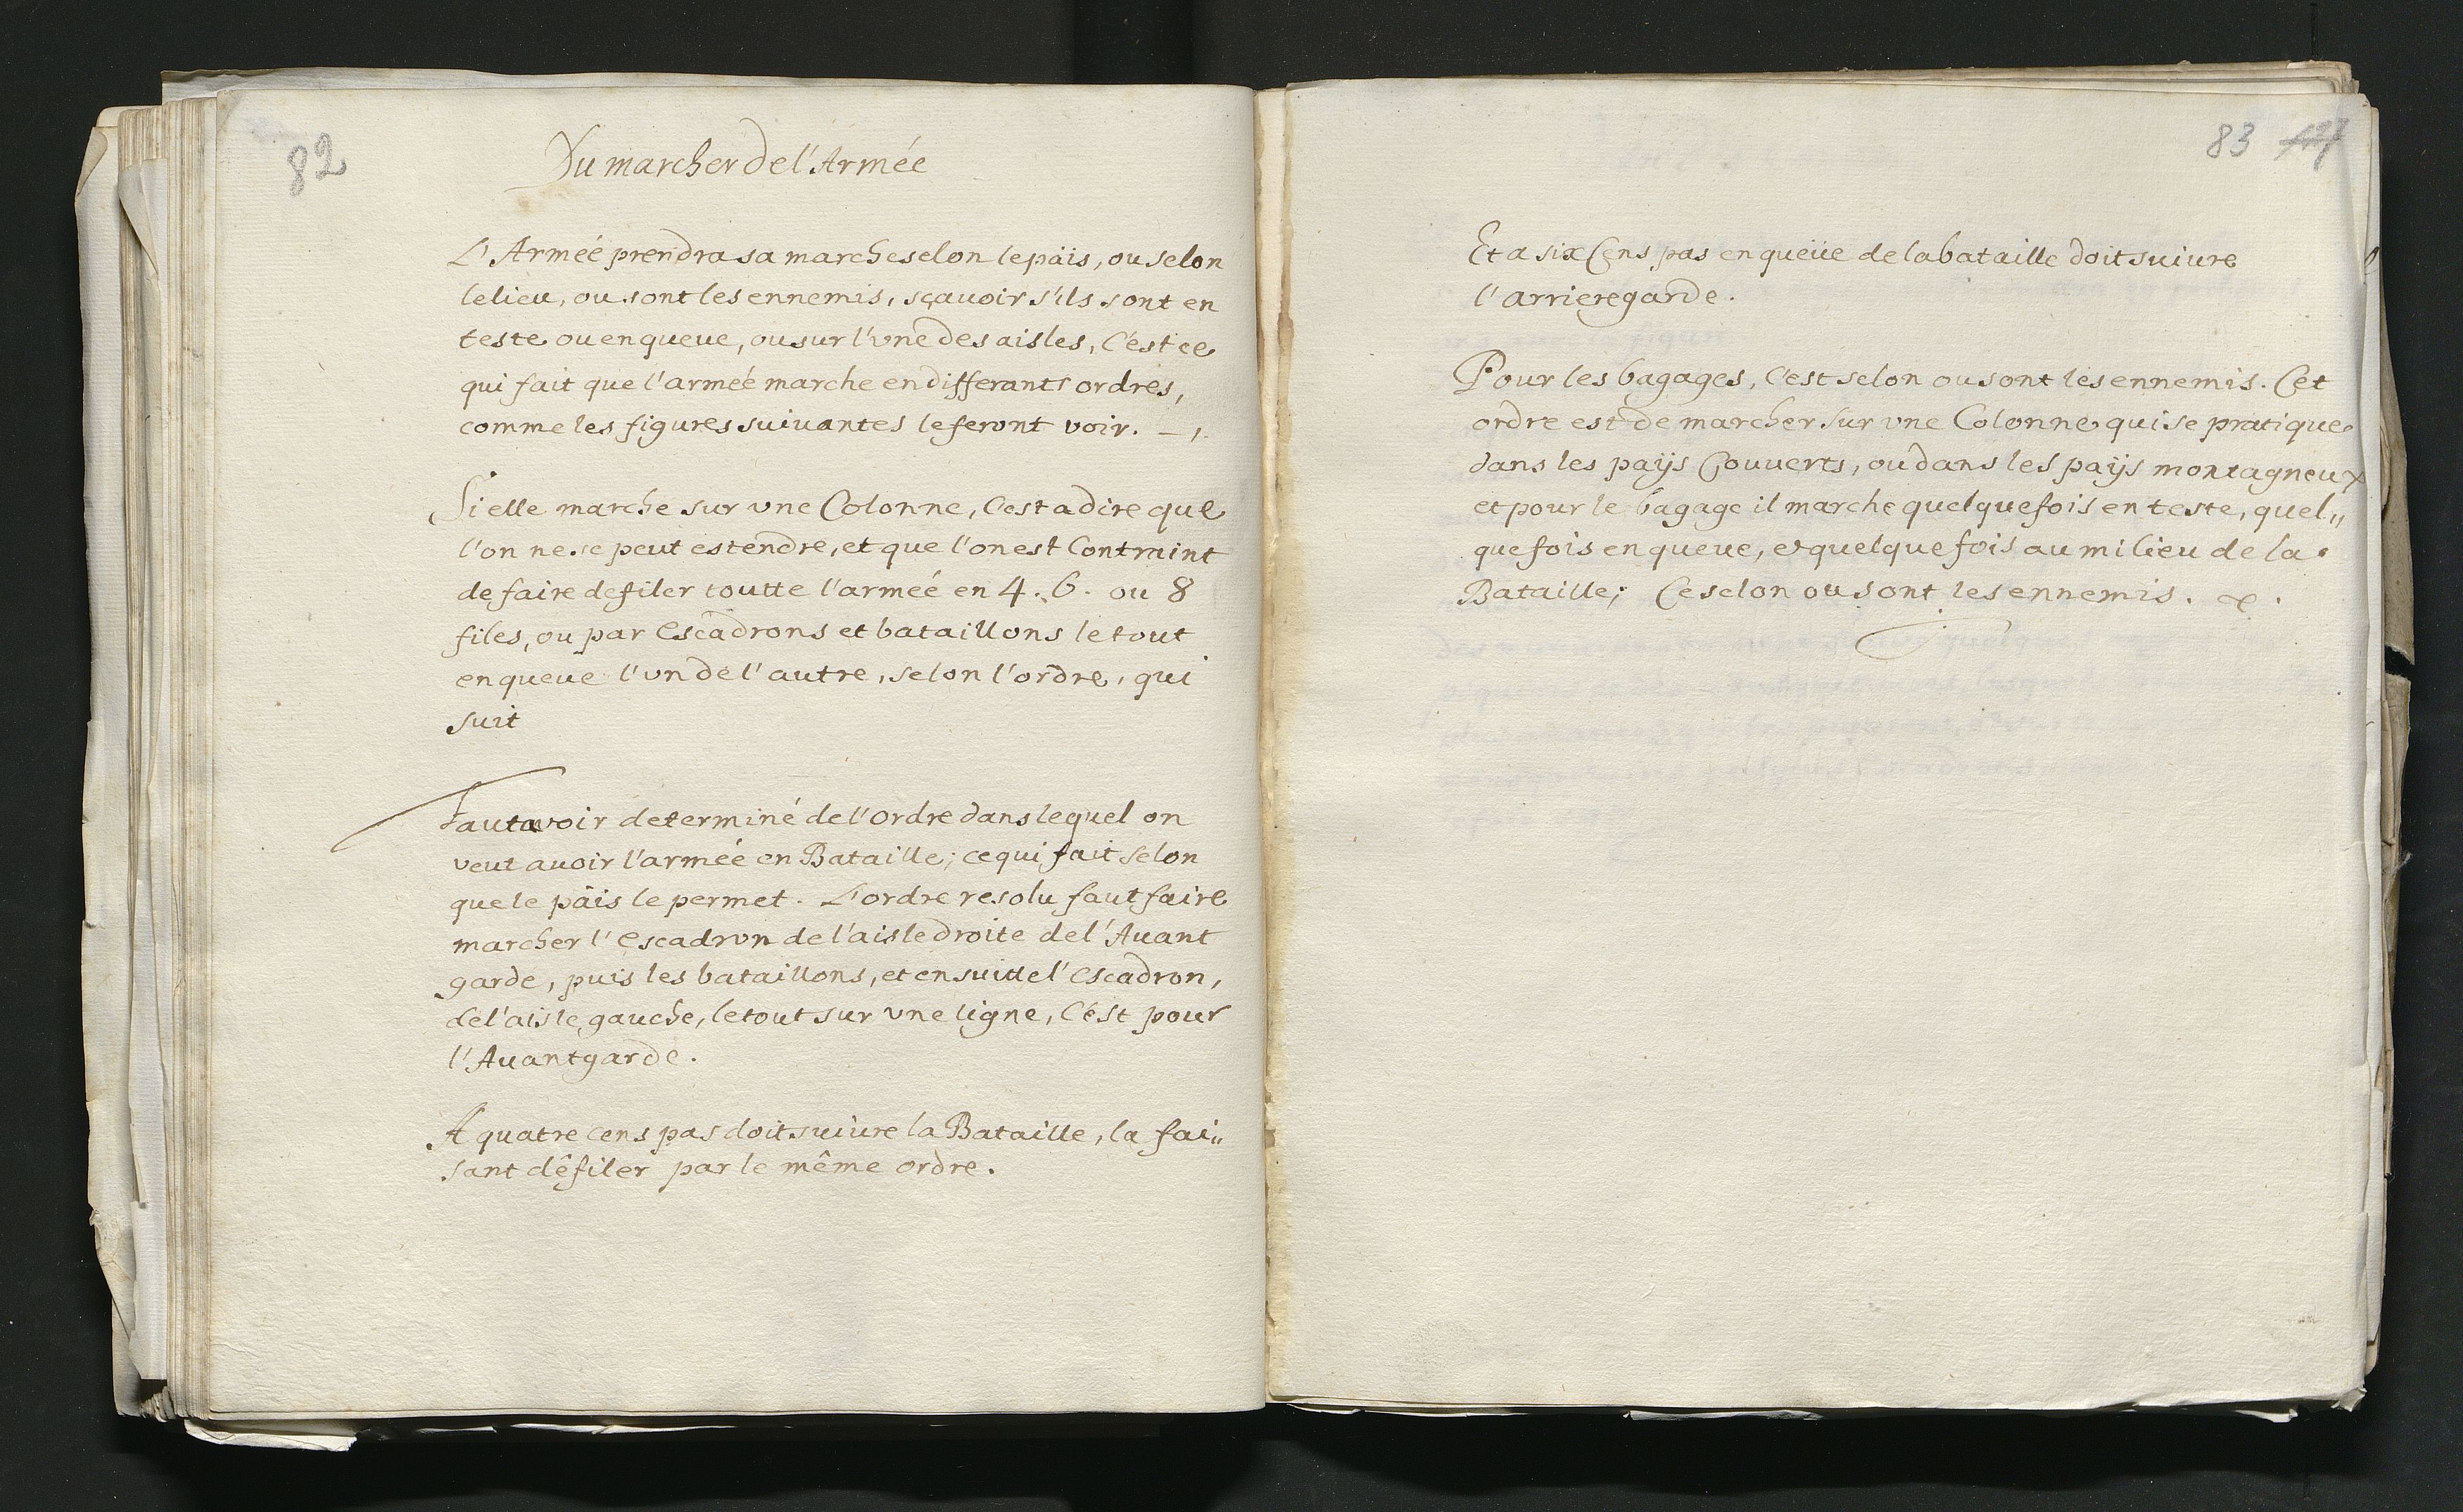 82
Du marcher de l'Armée
L'Armeé prendra sa marche selon le päis, ou selon
le lieu, ou sont les ennemis, sçauoir s'ils sont en
teste ou en queue, ou sur l'vne des aisles, C'est ce
qui fait que l'armeé marche en differants ordres,
comme les figures suiuantes le feront voir.
Si elle marche sur vne Colonne, C'est a dire que
l'on ne se peut estendre, et que l'on est Contraint
de faire defiler toutte l'armeé en 4. 6. ou 8
files, ou par Escadrons et bataillons le tout
en queue l'vn de l'autre, selon l'ordre, qui
suit
Faut avoir determiné de l'ordre dans lequel on
veut auoir l'armeé en Bataille; ce qui fait selon
que le päis le permet. L'ordre resolu faut faire
marcher l'Escadron de l'aisle droite de l'Auant
garde, puis les bataillons, et en suitte l'Escadron,
de l'aisle gauche, le tout sur vne ligne, C'est pour
l'Auantgarde.
A quatre cens pas doit suiure la Bataille, la fai„
sant défiler par le même ordre.
83
Et a six Cens pas en queüe de la bataille doit suiure
l'arrieregarde.
Pour les bagages, C'est selon ou sont les ennemis. Cet
ordre est de marcher sur vne Colonne qui se pratique
dans les païjs Couuerts, ou dans les païjs montagneux
et pour le bagage il marche quelquefois en teste, quel„
quefois en queue, et quelquefois au milieu de la
Bataille; Ce selon ou sont les ennemis.